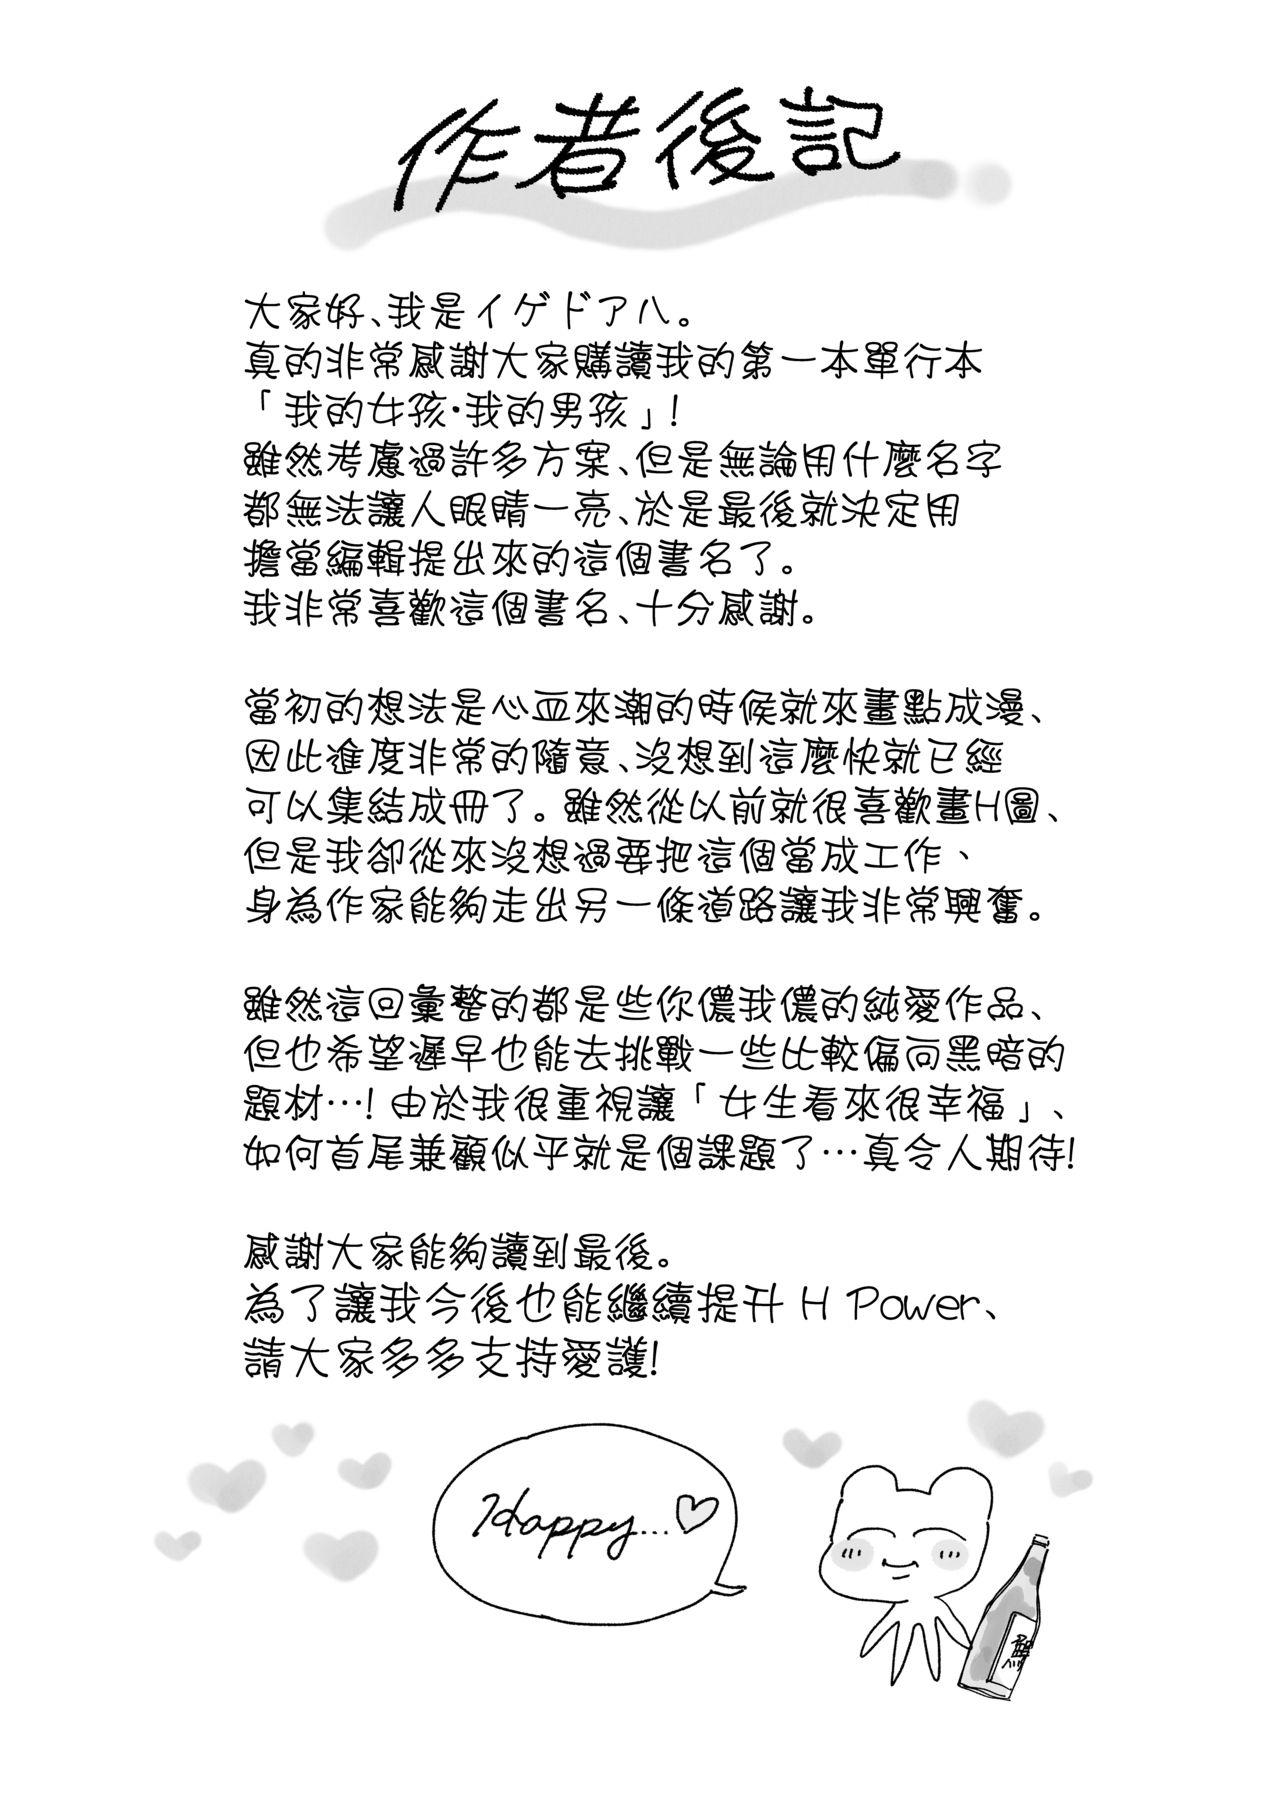 作者後記
大家好、我是イゲドアハ。
真的非常感謝大家購讀我的第一本單行本
「我的女孩·我的男孩」!
雖然考慮過許多方案、但是無論用什麼名字
都無法讓人眼睛一亮、於是最後就決定用
擔當編輯提出來的這個書名了。
我非常喜歡這個書名、十分感謝。
當初的想法是心血來潮的時候就來畫點成漫、
因此進度非常的隨意、沒想到這麼快就已經
可以集結成冊了。雖然從以前就很喜歡畫H圖、
但是我卻從來沒想過要把這個當成工作、
身為作家能夠走出另一條道路讓我非常興奮。
雖然這回彙整的都是些你儂我儂的純愛作品、
但也希望遲早也能去挑戰一些比較偏向黑暗的
題材…! 由於我很重視讓「女生看來很幸福」、
如何首尾兼顧似乎就是個課題了…真令人期待!
感謝大家能夠讀到最後。
為了讓我今後也能繼續提升 H Power、
請大家多多支持愛護!
Happy...♡